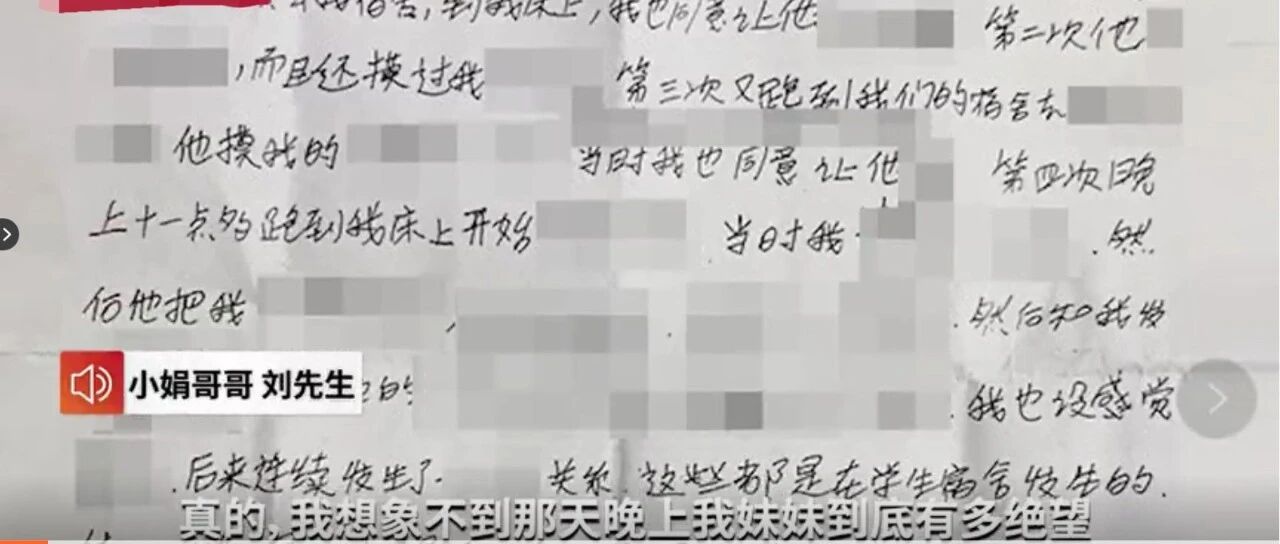 宿舍,到我床上,我也同意让他 第二次他
,而且还摸过我 第三次又跑到我们的宿舍去
他摸我的 当时我也同意让他 第四次晚
上十一点多跑到我床上开始 当时我 .然
后他把我 , .然后和我发
小娟哥哥 刘先生
.我也没感觉
.后来连续发生了 关系.这些都是在学生宿舍发生的.
真的,我想象不到那天晚上我妹妹到底有多绝望